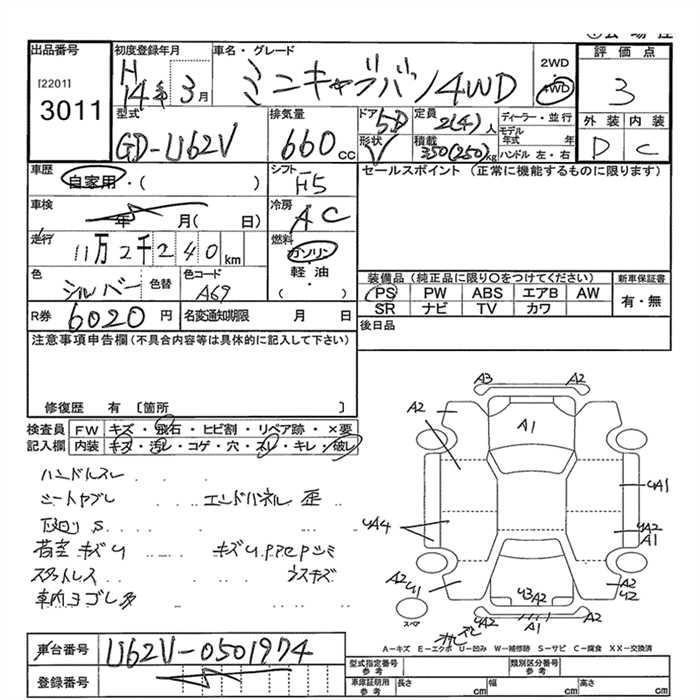 出品番号 初度登録年月 車名・グレード 評価点
[2201] 3011 H14年3月 ミニキャブバン 4WD 2WD 4WD 3
型式 排気量 ドア 定員 ディーラー・並行 外装 内装
GD-U62V 660cc 5D 2(4)人 モデル年式 年 D C
形状 積載 350(250)kg ハンドル 左・右
車歴 自家用・( ) シフト H5 セールスポイント(正常に機能するものに限ります)
車検 年 月( 日) 冷房 AC
走行 11万2千240km 燃料 ガソリン 軽油 ・( )
色 シルバー 色替 色コード A69
装備品(純正品に限り〇をつけてください) 新車保証書
PS PW ABS エアB AW 有・無
SR ナビ TV カワ
R券 6020円 名変通知期限 月 日 後日品
注意事項申告欄(不具合内容等は具体的に記入して下さい)
修復歴 有 〔箇所 〕
検査員記入欄 FW キズ・飛石・ヒビ割・リペア跡・×要
内装 キズ・汚レ・コゲ・穴・スレ・キレ・破レ
ハンドルスレ
シートヤブレ エンドパネル 歪
下廻り S
荷室 キズU キズU
スタットレス ラスキズ
車内ヨゴレ多
A3 A2
A2 A1
UA1
UA4 UA2 A1
A2 U1 U3 A2 A2 U2
UA2 A2 A1
スペア
A-キズ E-エクボ U-凹み W-補修跡 S-サビ C-腐食 XX-交換済
車台番号 U62V-0501974
登録番号
型式指定番号 参考 類別区分番号 参考
車庫証明用 参考 長さ cm 幅 cm 高さ cm